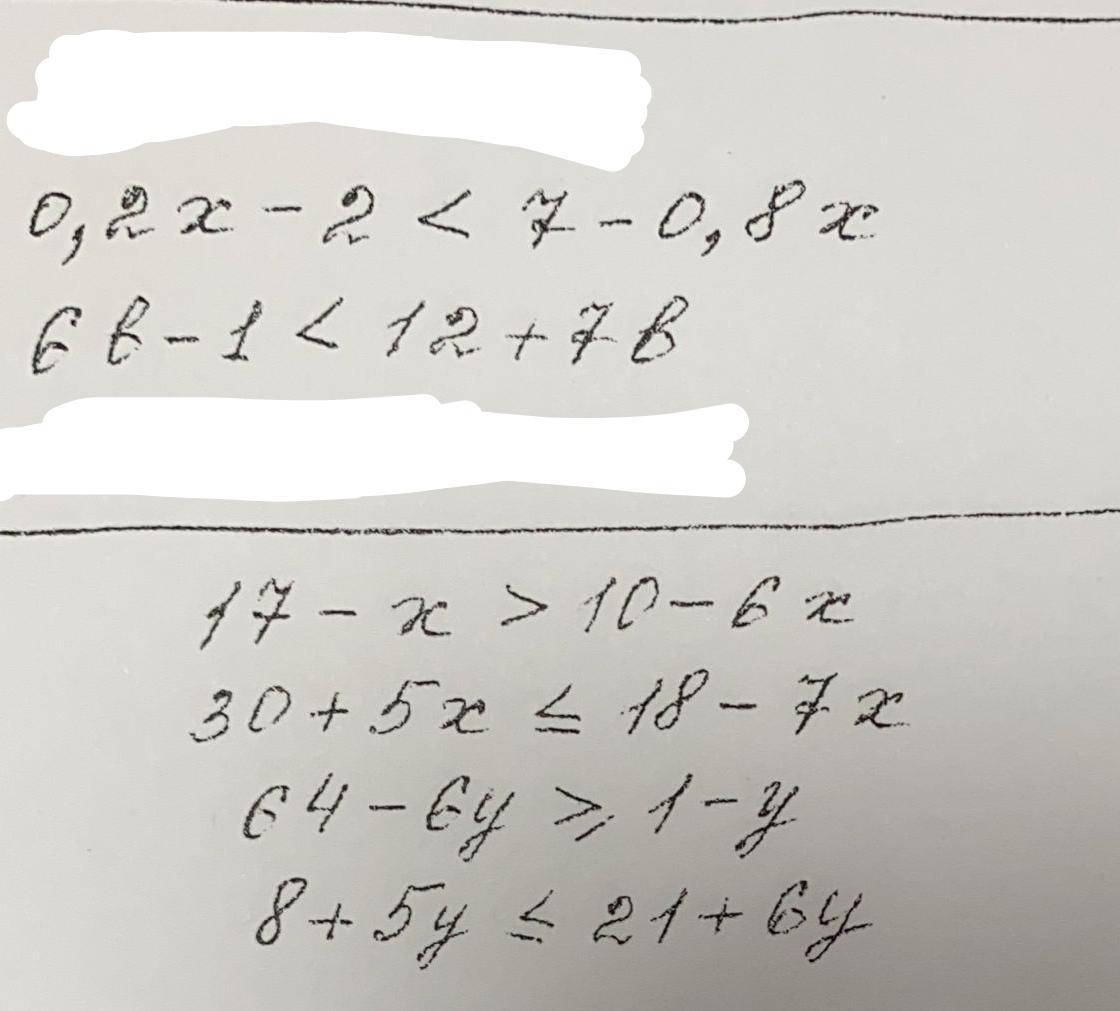 0,2x - 2 < 7 - 0,8x
6b - 1 < 12 + 7b
17 - x > 10 - 6x
30 + 5x ≤ 18 - 7x
64 - 6y ≥ 1 - y
8 + 5y ≤ 21 + 6y